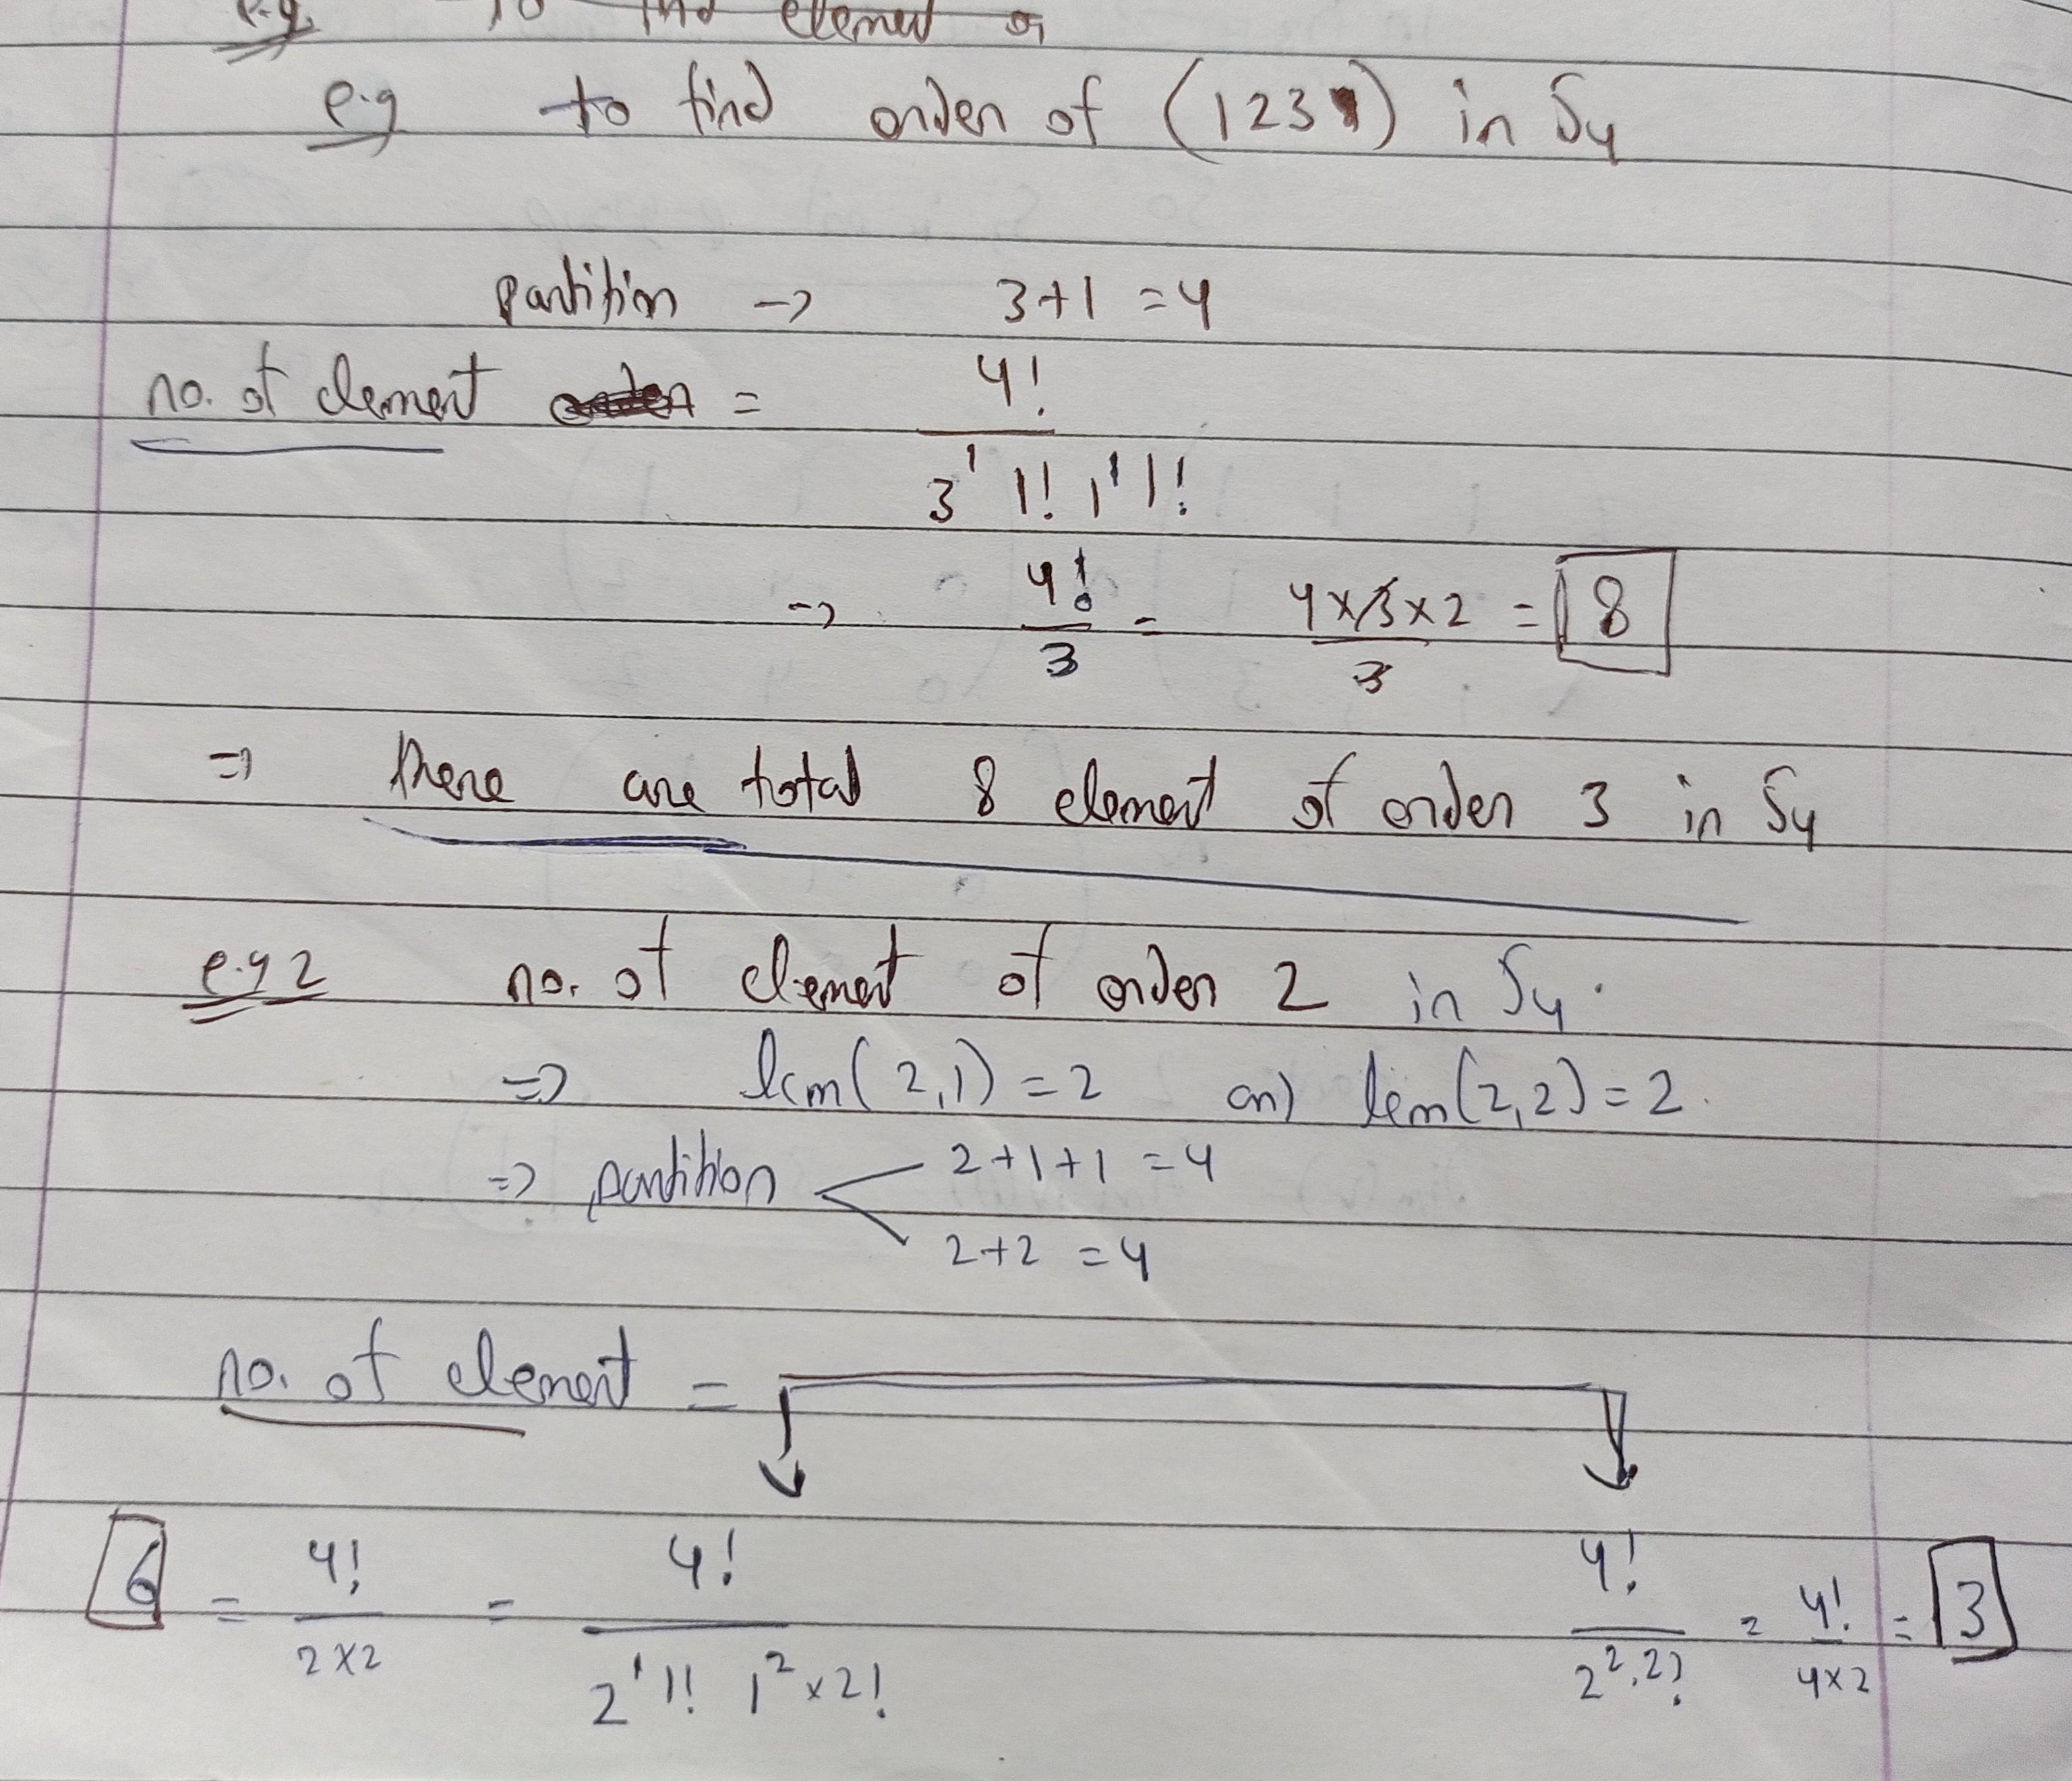 e.g. To find element of
e.g to find order of (123) in S₄
partition → 3+1 = 4
no. of element = 4! / 3¹ 1! 1¹ 1!
→ 4!/3 = 4×3×2/3 = 8
⇒ there are total 8 element of order 3 in S₄
e.g 2 no. of element of order 2 in S₄.
⇒ lcm(2,1) = 2 or) lcm(2,2) = 2.
⇒ partition < 2+1+1 = 4
2+2 = 4
no. of element =
6 = 4!/2×2 = 4!/2¹ 1! 1² × 2! 4!/2².2! = 4!/4×2 = 3